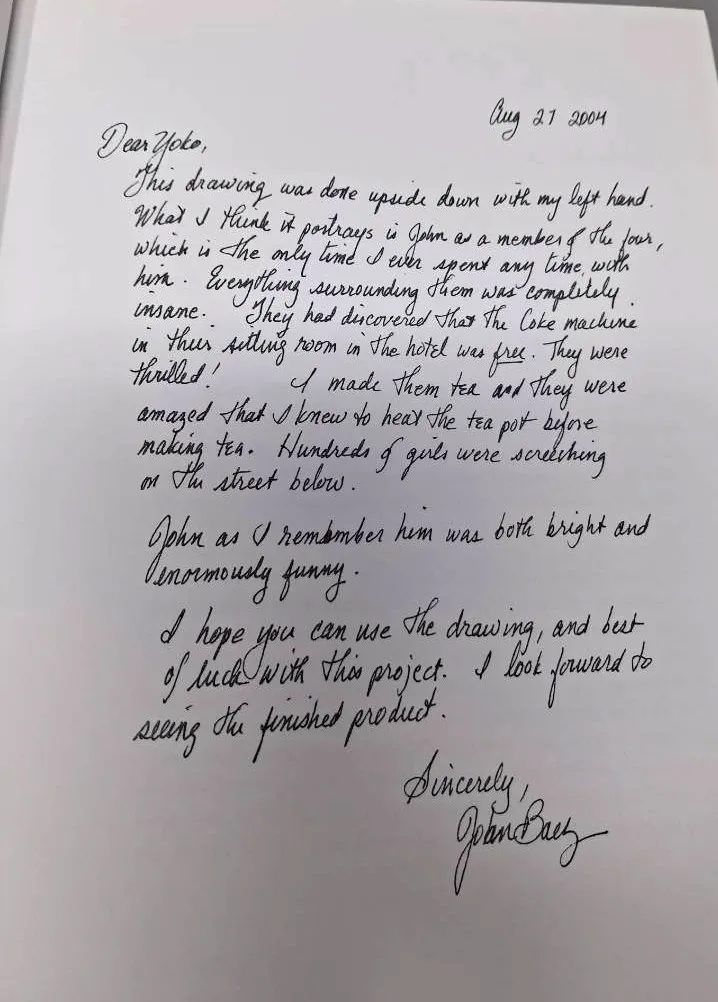 Aug 27 2004
Dear Yoko,
This drawing was done upside down with my left hand.
What I think it portrays is John as a member of the four,
which is the only time I ever spent any time, with
him. Everything surrounding them was completely
insane. They had discovered that the Coke machine
in their sitting room in the hotel was free. They were
thrilled! I made them tea and they were
amazed that I knew to heat the tea pot before
making tea. Hundreds of girls were screeching
on the street below.
John as I remember him was both bright and
enormously funny.
I hope you can use the drawing, and best
of luck with this project. I look forward to
seeing the finished product.
Sincerely,
Joan Baez